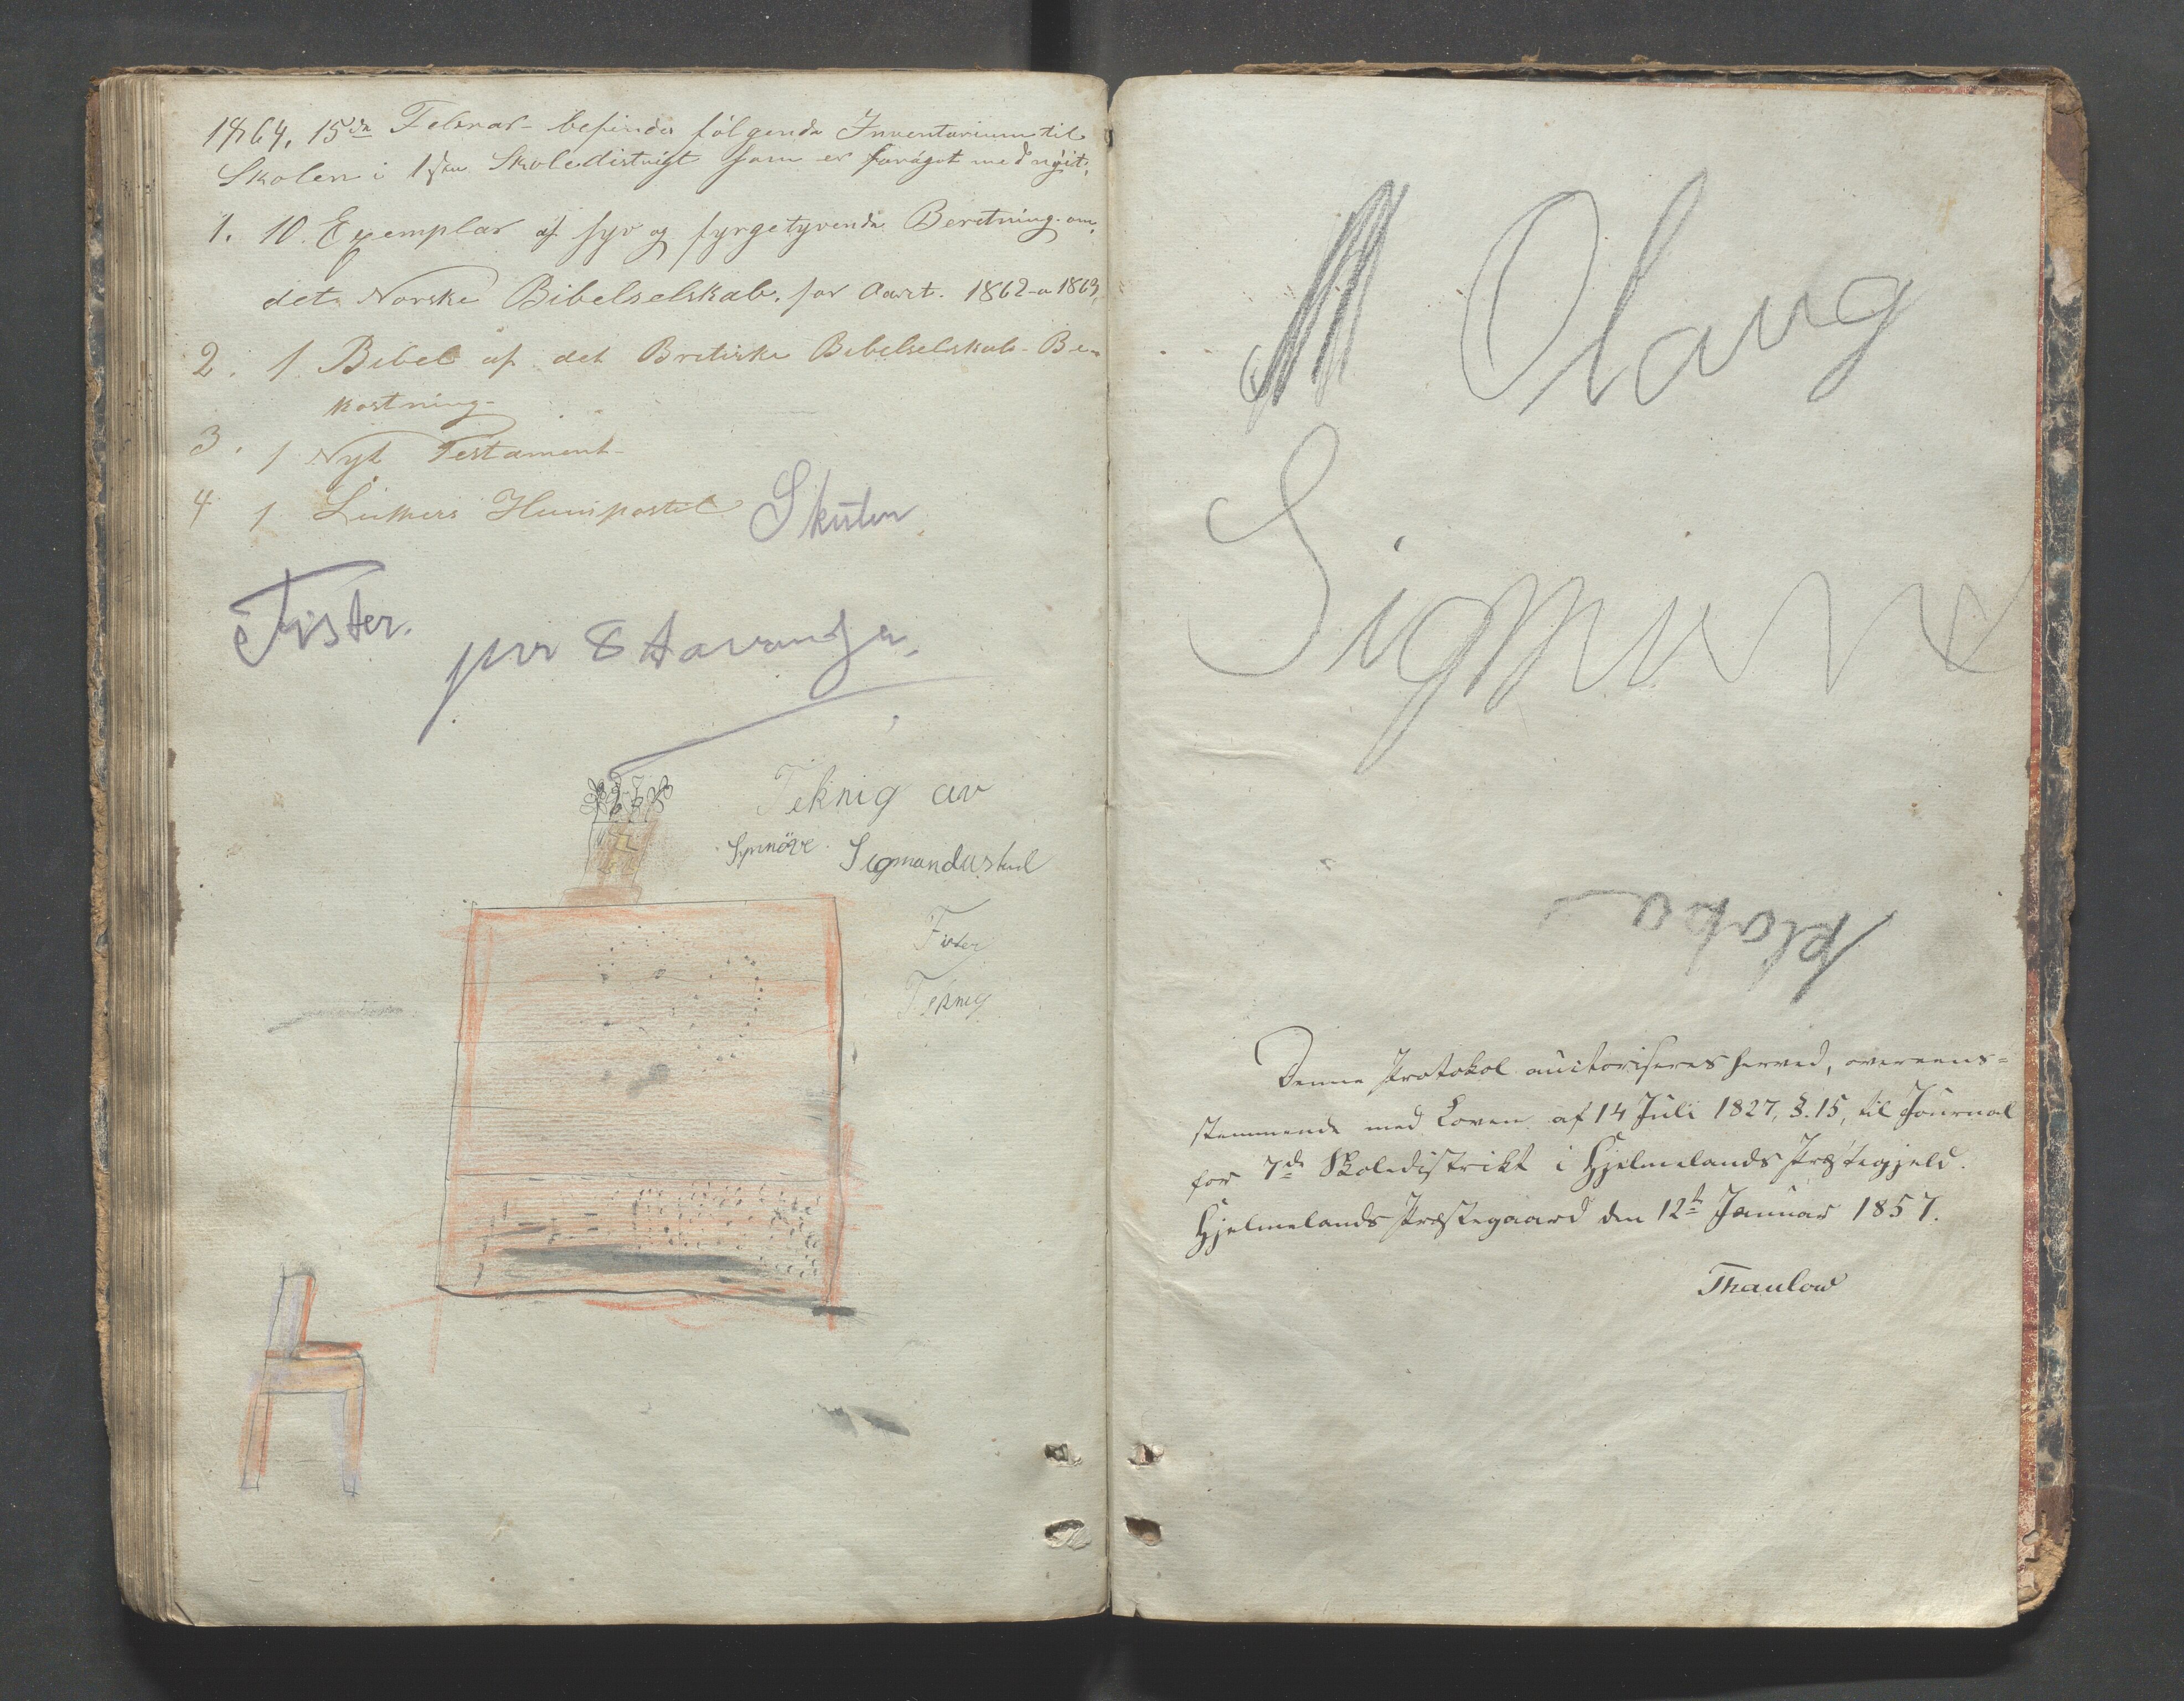 1864, 15de Februar befindes følgende Inventarium til
Skolen i 1ste Skoledistrigt som er forøgot med nyit.
1. 10 Exemplar af syv og fyrgetyvende Beretning om
det Norske Bibelselskab, for Aaret. 1862-a 1863
2. 1 Bibel af det Britiske Bibelselskab Be-
kostning
3. 1 Nyt Testament
4 1 Luthers Huuspostil
Skulen
Fister.
pr Stavanger.
Teknig av
Synnöve Sigmundstad
Fister
Teknig
Olaug
Sigmund
kloka
Denne Protokol auctoriseres herved, overeens-
stemmende med Loven af 14 Juli 1827, §. 15, til Journal
for 7de Skoledistrikt i Hjelmelands Præstegjeld.
Hjelmelands Præstegaard den 12te Januar 1857.
Thaulow